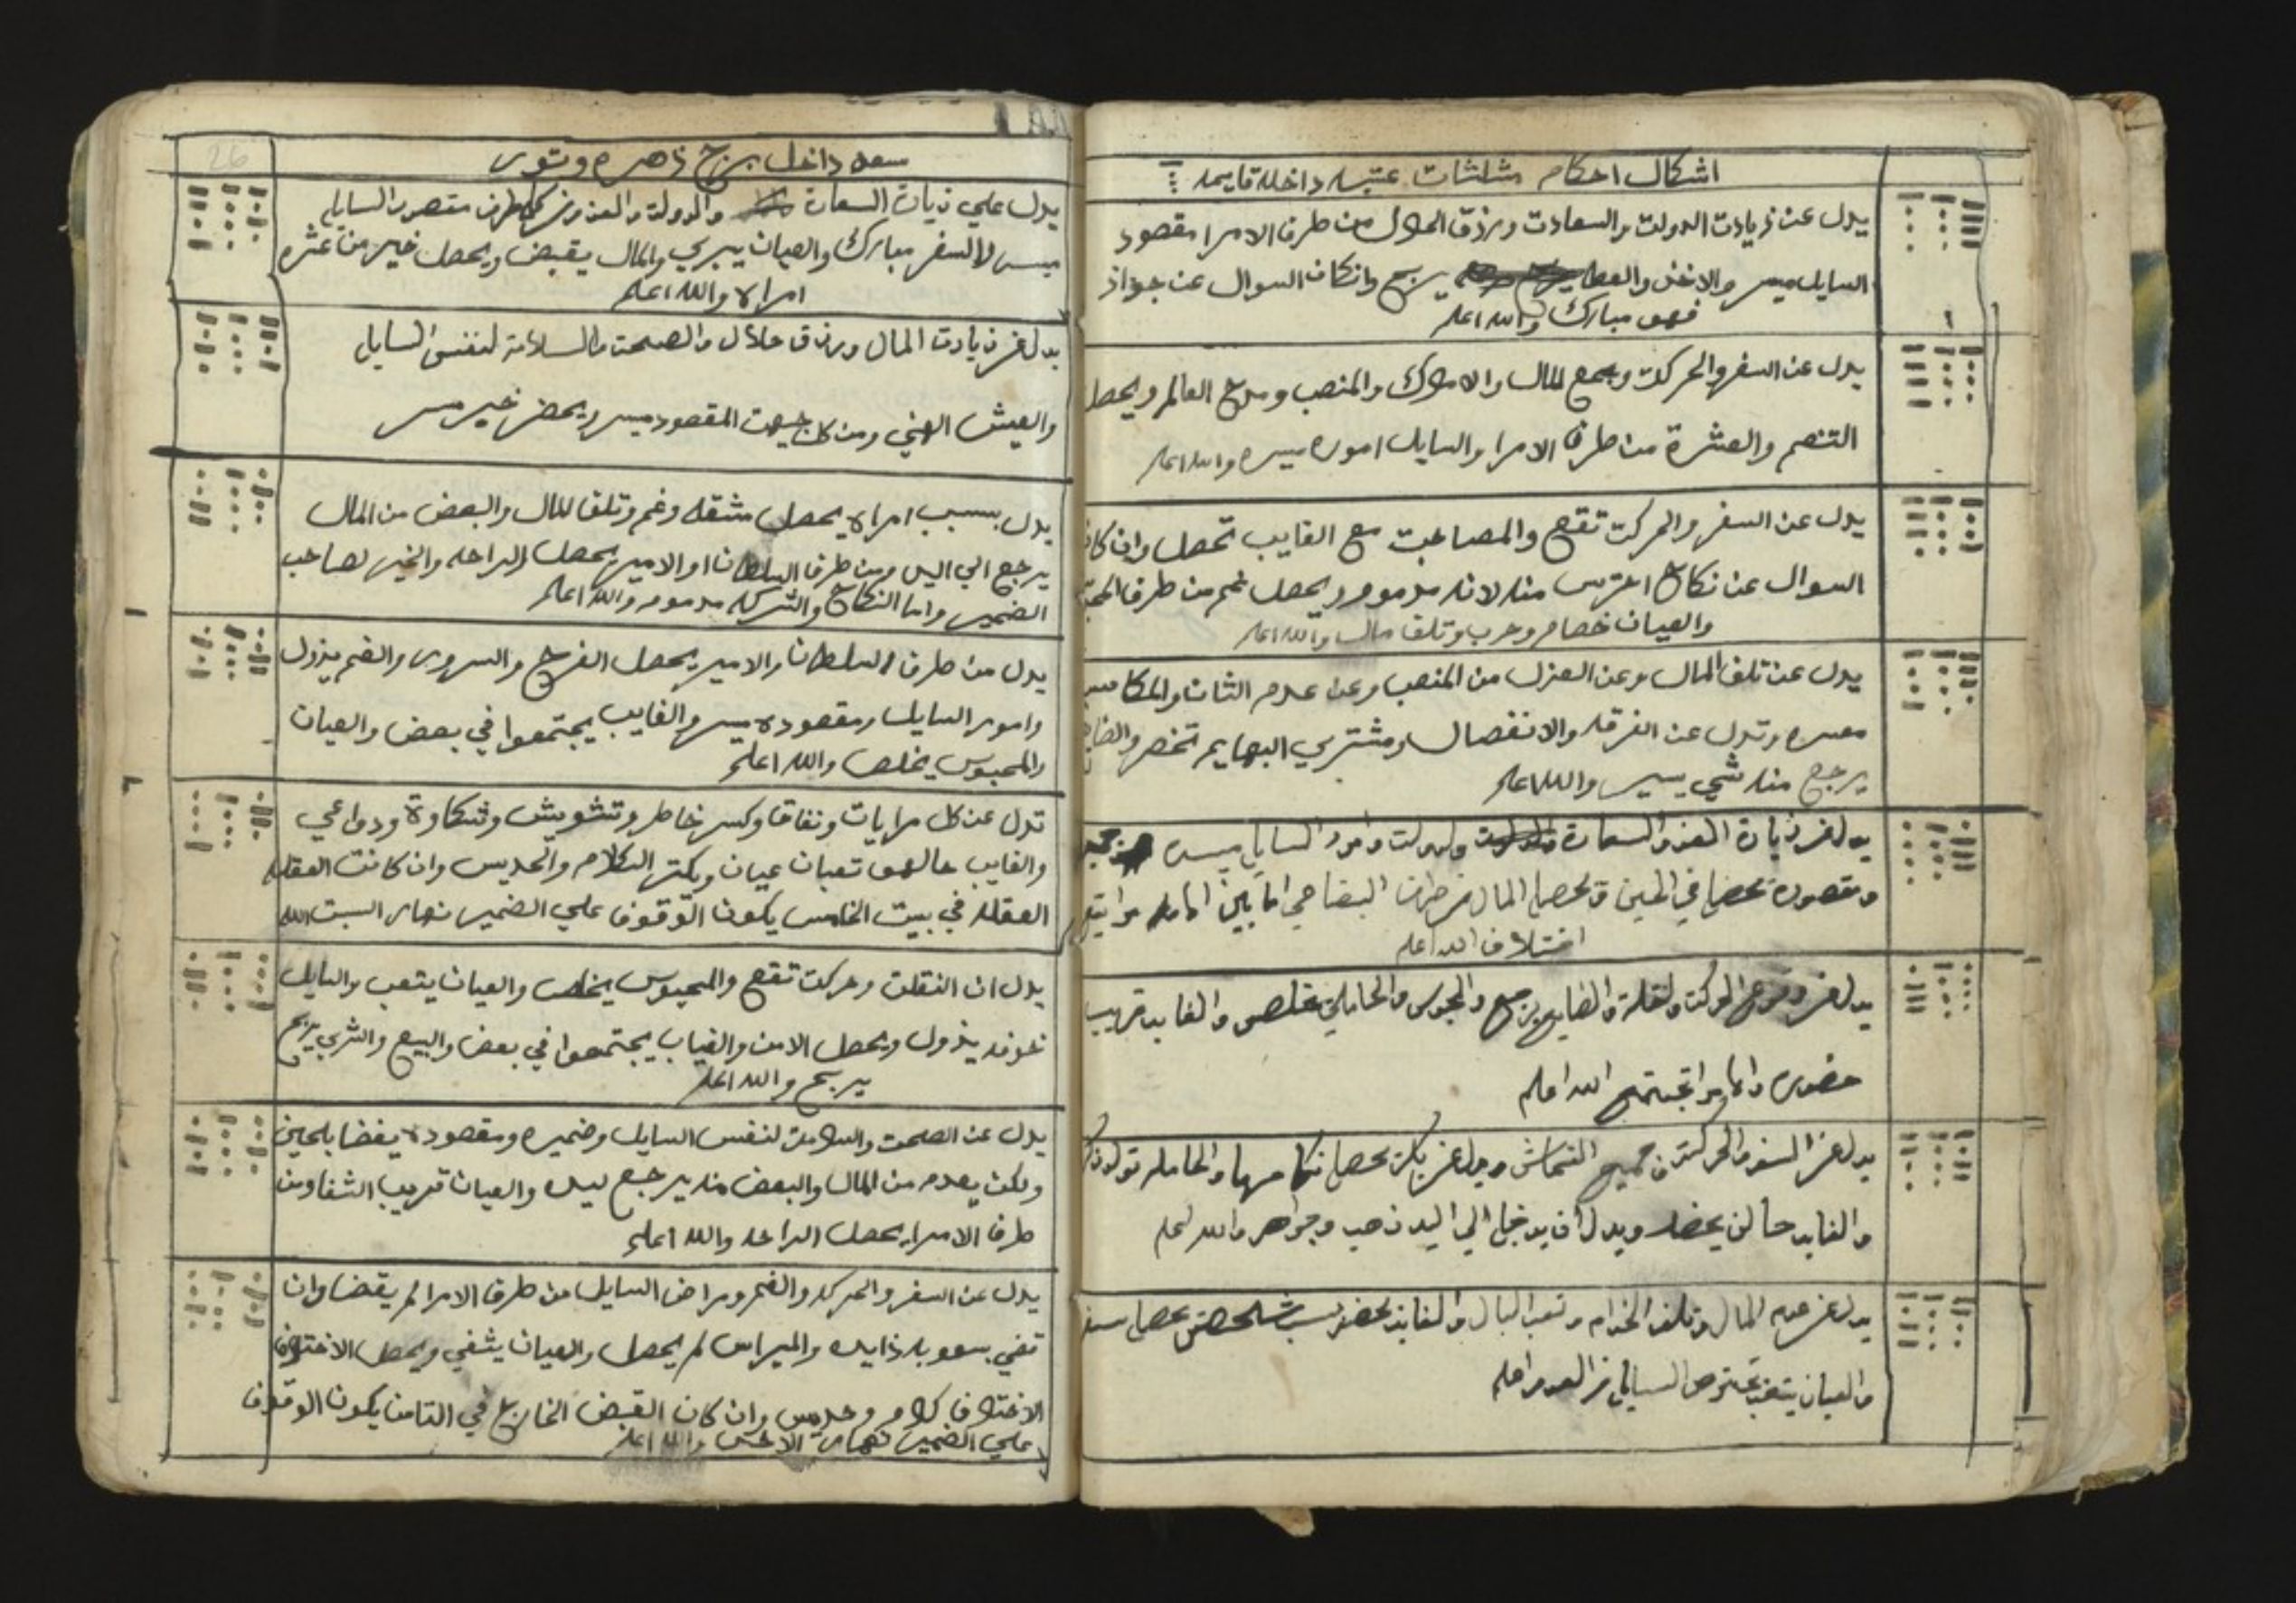 اشكال احكام مثلثات عتبه داخله قايمه
يدل عن زيادت الدولت والسعادت ورزق الحلال من طرف الامرا مقصود
السايل ميسر والاخذ والعطا يربح وانكان السوال عن جواز
فهو مبارك والله اعلم
١
يدل عن السفر والحركت وجمع المال والاملاك والمنصب ومدح العالم ويحصل
التنعم والعشرة من طرف الامرا والسايل اموره ميسره والله اعلم
يدل عن السفر والحركت تقع والمصاحبت مع الغايب تحصل وان كان
السوال عن نكاح احترس منه لانه مدموم ويحصل غم من طرف
والعيان خصام وحرب وتلف مال والله اعلم
يدل عن تلف المال وعن العزل من المنصب وعن عدم الثبات والمكاسب
معسره وتدل عن الفرقه والانفصال ومشتري البهايم تخصر
يرجع منه شي يسير والله اعلم
يدل عن زيادة العز والسعادة والدولت وامور السايل ميسره
ومقصوده تحصل في الحين ويحصل المال من طرف
اختلاف الله اعلم
يدل عن وقوع الحركت ونقله والضايع يرجع والمحبوس والحامله تخلص والغايب قريب
حضوره تجتمع الله اعلم
يدل عن السفر والحركت جميع القماش ويدل عن بكر تحصل نكاحها والحامله تولد
والغايب حالن يحضر ويدل ان يدخل الي اليد ذهب وجواهر والله اعلم
يدل عن عدم المال وتلف الخدام وتعب البال والغايب يحضر بسبب شخص يحصل
والعيان يتعب السايل من العدو اعلم
26
سعد داخل برج زهره وتور
يدل علي زيادة السعادة والدولت والعز ومن كل طرف مقصود السايل
ميسر والسفر مبارك والعيان يبري والمال يقبض ويحصل خير من عشره
امراه والله اعلم
يدل عن زيادت المال ورزق حلال والصحت والسلامة لنفس السايل
والعيش الهني ومن كل جيهت المقصود ميسر ويحضر خير ميسر
يدل بسبب امراه يحصل مشقه وغم وتلف المال والبعض من المال
يرجع الي اليد ومن طرف السلطان او الامير يحصل الراحه والخير لصاحب
الضمير واما النكاح والشركه مدموم والله اعلم
يدل من طرف السلطان والامير يحصل الفرج والسرور والغم يزول
وامور السايل ومقصوده ميسر والغايب يجتمعوا في بعض والعيان
والمحبوس يخلص والله اعلم
تدل عن كل مرايات ونفاق وكسر خاطر وتشويش وشكاوة ودواعي
والغايب حالهو تعبان عيان ويكتر الكلام والحديس وان كانت العقله
العقله في بيت الخامس يكون الوقوف علي الضمير نهار السبت الله
يدل ان النقلت وحركت تقع والمحبوس يخلص والعيان يتعب والسايل
خوفه يذول ويحصل الامن والغياب يجتمعوا في بعض والبيع والشري يربح
يربح والله اعلم
يدل عن الصحت والسلامت لنفس السايل وضميره ومقصوده يقضا بلحين
ولكن يعدم من المال والبعض منه يرجع ليده والعيان قريب الشفا ومن
طرف الامرا يحصل الراحه والله اعلم
يدل عن السفر والحركه والغم ومراض السايل من طرف الامرا لم يقضا وان
تقي بسعوبه زايده والميراس لم يحصل والعيان يشفي ويحصل الاختلاف
الاختلاف كلام وحديس وان كان القبض الخارج في التامن يكون الوقوف
علي الضمير نهار والله اعلم